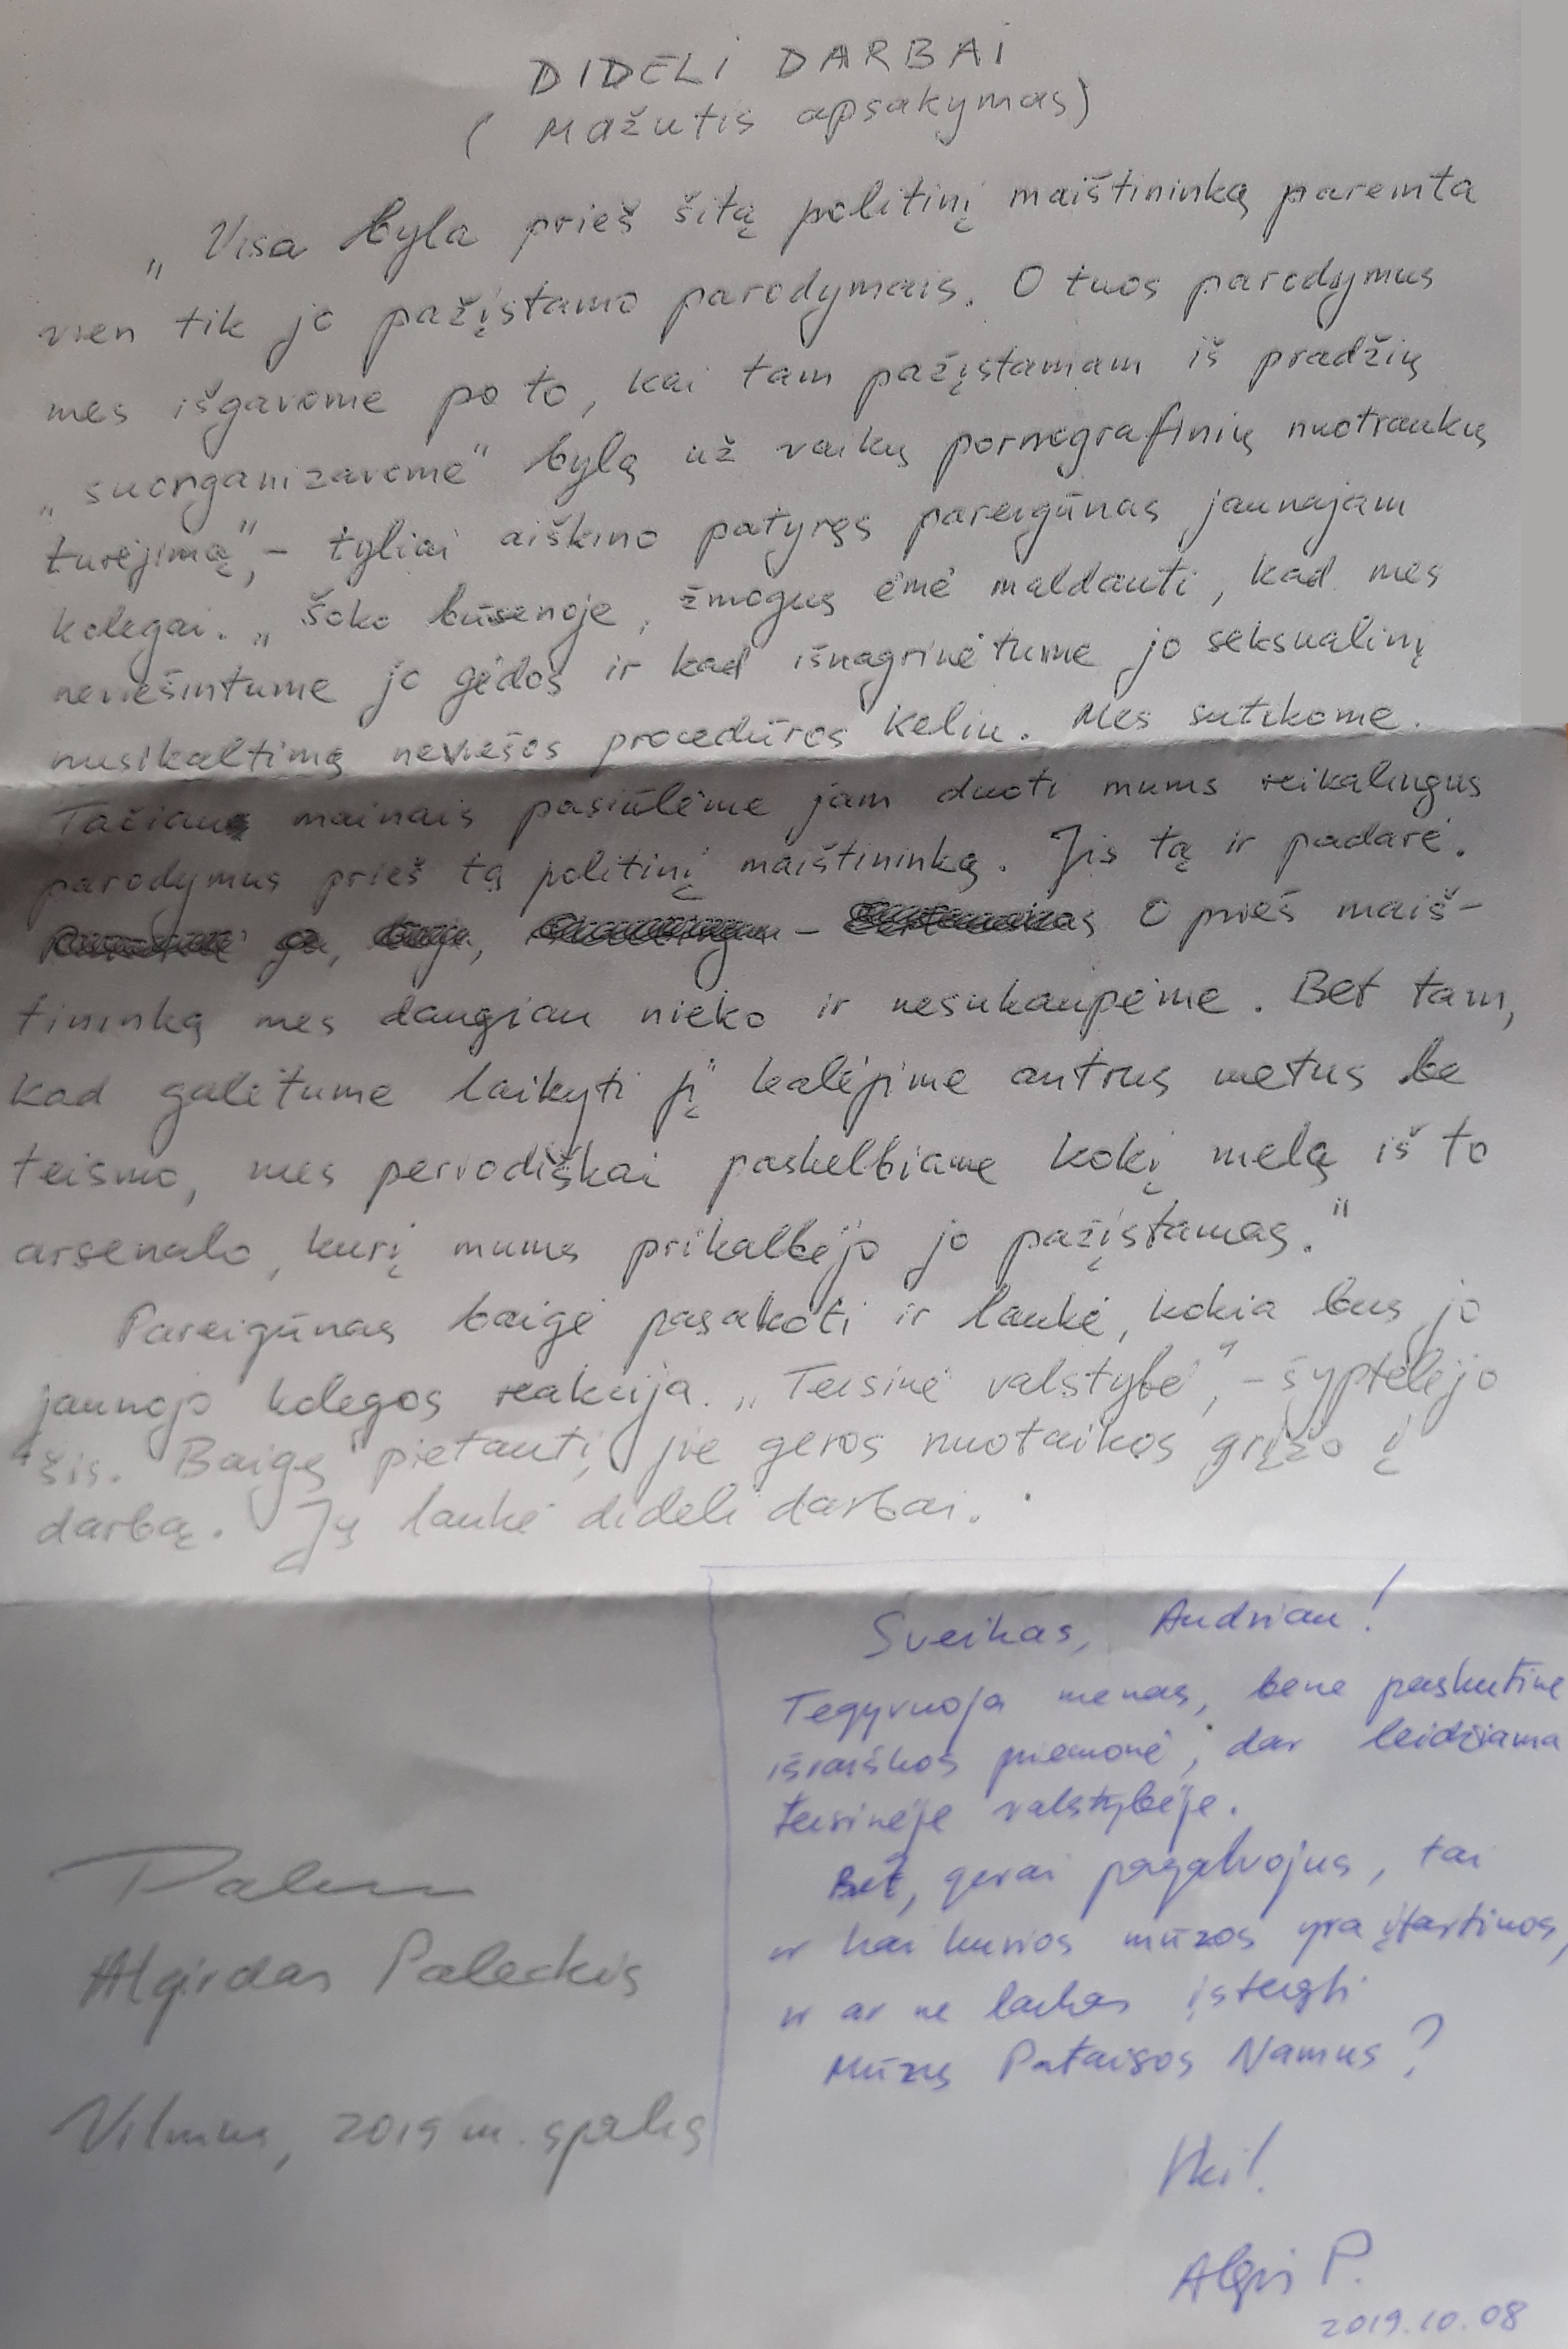 DIDELI DARBAI
(Mažutis apsakymas)
„Visa byla prieš šitą politinį maištininką paremta
vien tik jo pažįstamo parodymais. O tuos parodymus
mes išgavome po to, kai tam pažįstamam iš pradžių
„suorganizavome" bylą už vaikų pornografinių nuotraukų
turėjimą", – tyliai aiškino patyręs pareigūnas jaunajam
kolegai. „Šoko būsenoje, žmogus ėmė maldauti, kad mes
neviešintume jo gėdos ir kad išnagrinėtume jo seksualinį
nusikaltimą neviešos procedūros keliu. Mes sutikome.
Tačiau mainais pasiūlėme jam duoti mums reikalingus
parodymus prieš tą politinį maištininką. Jis tą ir padarė.
O prieš maiš-
tininką mes daugiau nieko ir nesukaupėme. Bet tam,
kad galėtume laikyti jį kalėjime antrus metus be
teismo, mes periodiškai paskelbiame kokį melą iš to
arsenalo, kurį mums prikalbėjo jo pažįstamas."
Pareigūnas baigė pasakoti ir laukė, kokia bus jo
jaunojo kolegos reakcija. „Teisinė valstybė", – šyptelėjo
šis. Baigę pietauti, jie geros nuotaikos grįžo į
darbą. Jų laukė dideli darbai.
Algirdas Paleckis
Vilnius, 2019 m. spalis
Sveikas, Andriau!
Tegyvuoja menas, bene paskutinė
išraiškos priemonė, dar leidžiama
teisinėje valstybėje.
Bet, gerai pagalvojus, tai
ir kai kurios mūzos yra įtartinos,
ir ar ne laikas įsteigti
Mūzų Pataisos Namus?
Iki!
Algis P.
2019.10.08